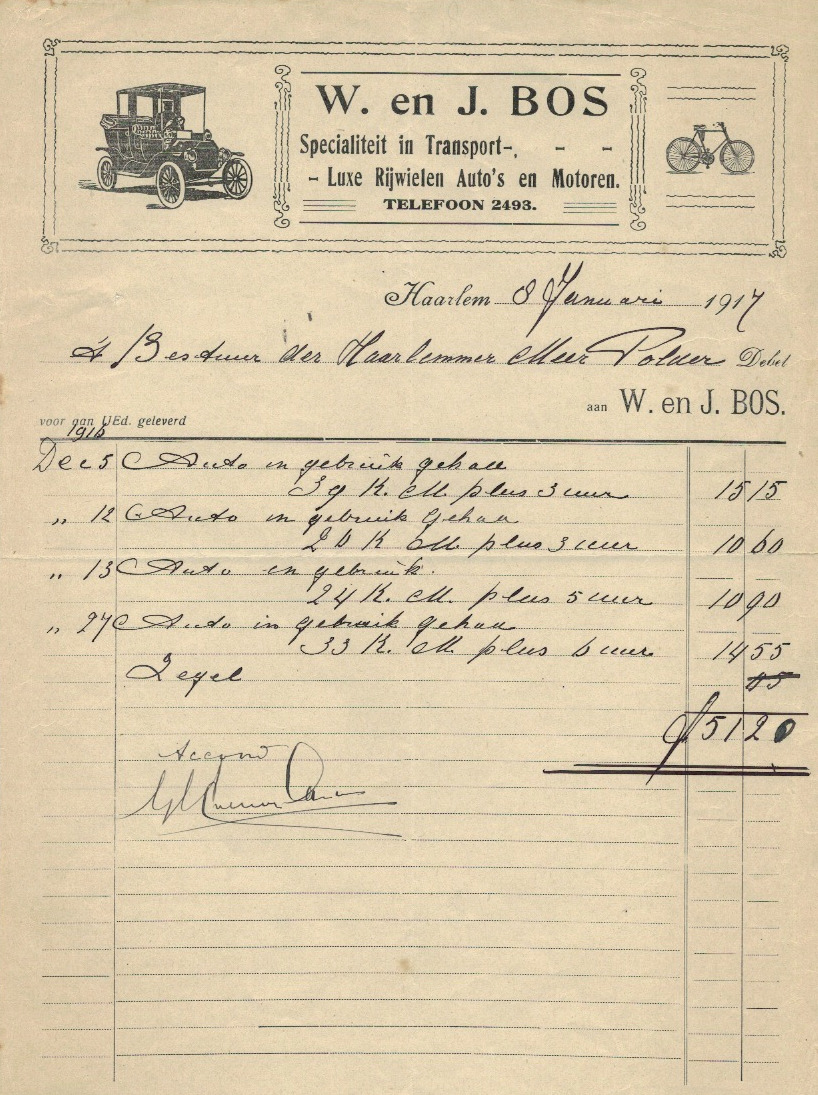 W. en J. BOS
Specialiteit in Transport-, - -
- Luxe Rijwielen Auto's en Motoren.
TELEFOON 2493.
Haarlem 8 Januari 1917
't Bestuur der Haarlemmer Meer Polder Debet
aan W. en J. BOS.
voor aan UEd. geleverd
1916
Dec 5 Auto in gebruik gehad
39 K. M. plus 3 uur 15 15
„ 12 Auto in gebruik gehad
20 K M. plus 3 uur 10 60
„ 13 Auto in gebruik.
24 K. M. plus 5 uur 10 90
„ 27 Auto in gebruik gehad
33 K. M plus 6 uur 14 55
Zegel 05
f 51 20
Accoord